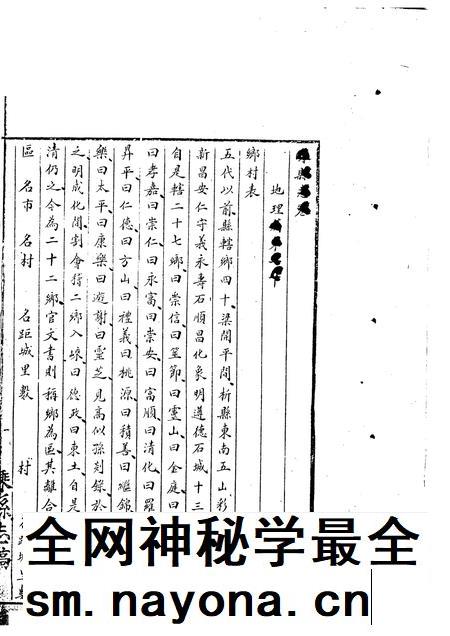 縣
地理
鄉村表
五代以前縣轄鄉四十梁開平間析縣東南五山彩
新昌安仁守義永壽石順昌化象明遵德石城十三
自是轄二十七鄉曰崇信曰筮節曰靈山曰金庭曰
曰孝嘉曰崇仁曰永富曰崇安曰富順曰清化曰羅
昇平曰仁德曰方山曰禮義曰桃源曰積善曰繼錦
樂曰太平曰康樂曰遊謝曰靈芝見高似孫剡錄於
之明成化間割會稽二鄉入嵊曰德政曰東土自是
清仍之今為二十二鄉官文書則稱鄉為區其離合
區名市名村名距城里數村
嵊縣志稿
全网神秘学最全
sm.nayona.cn